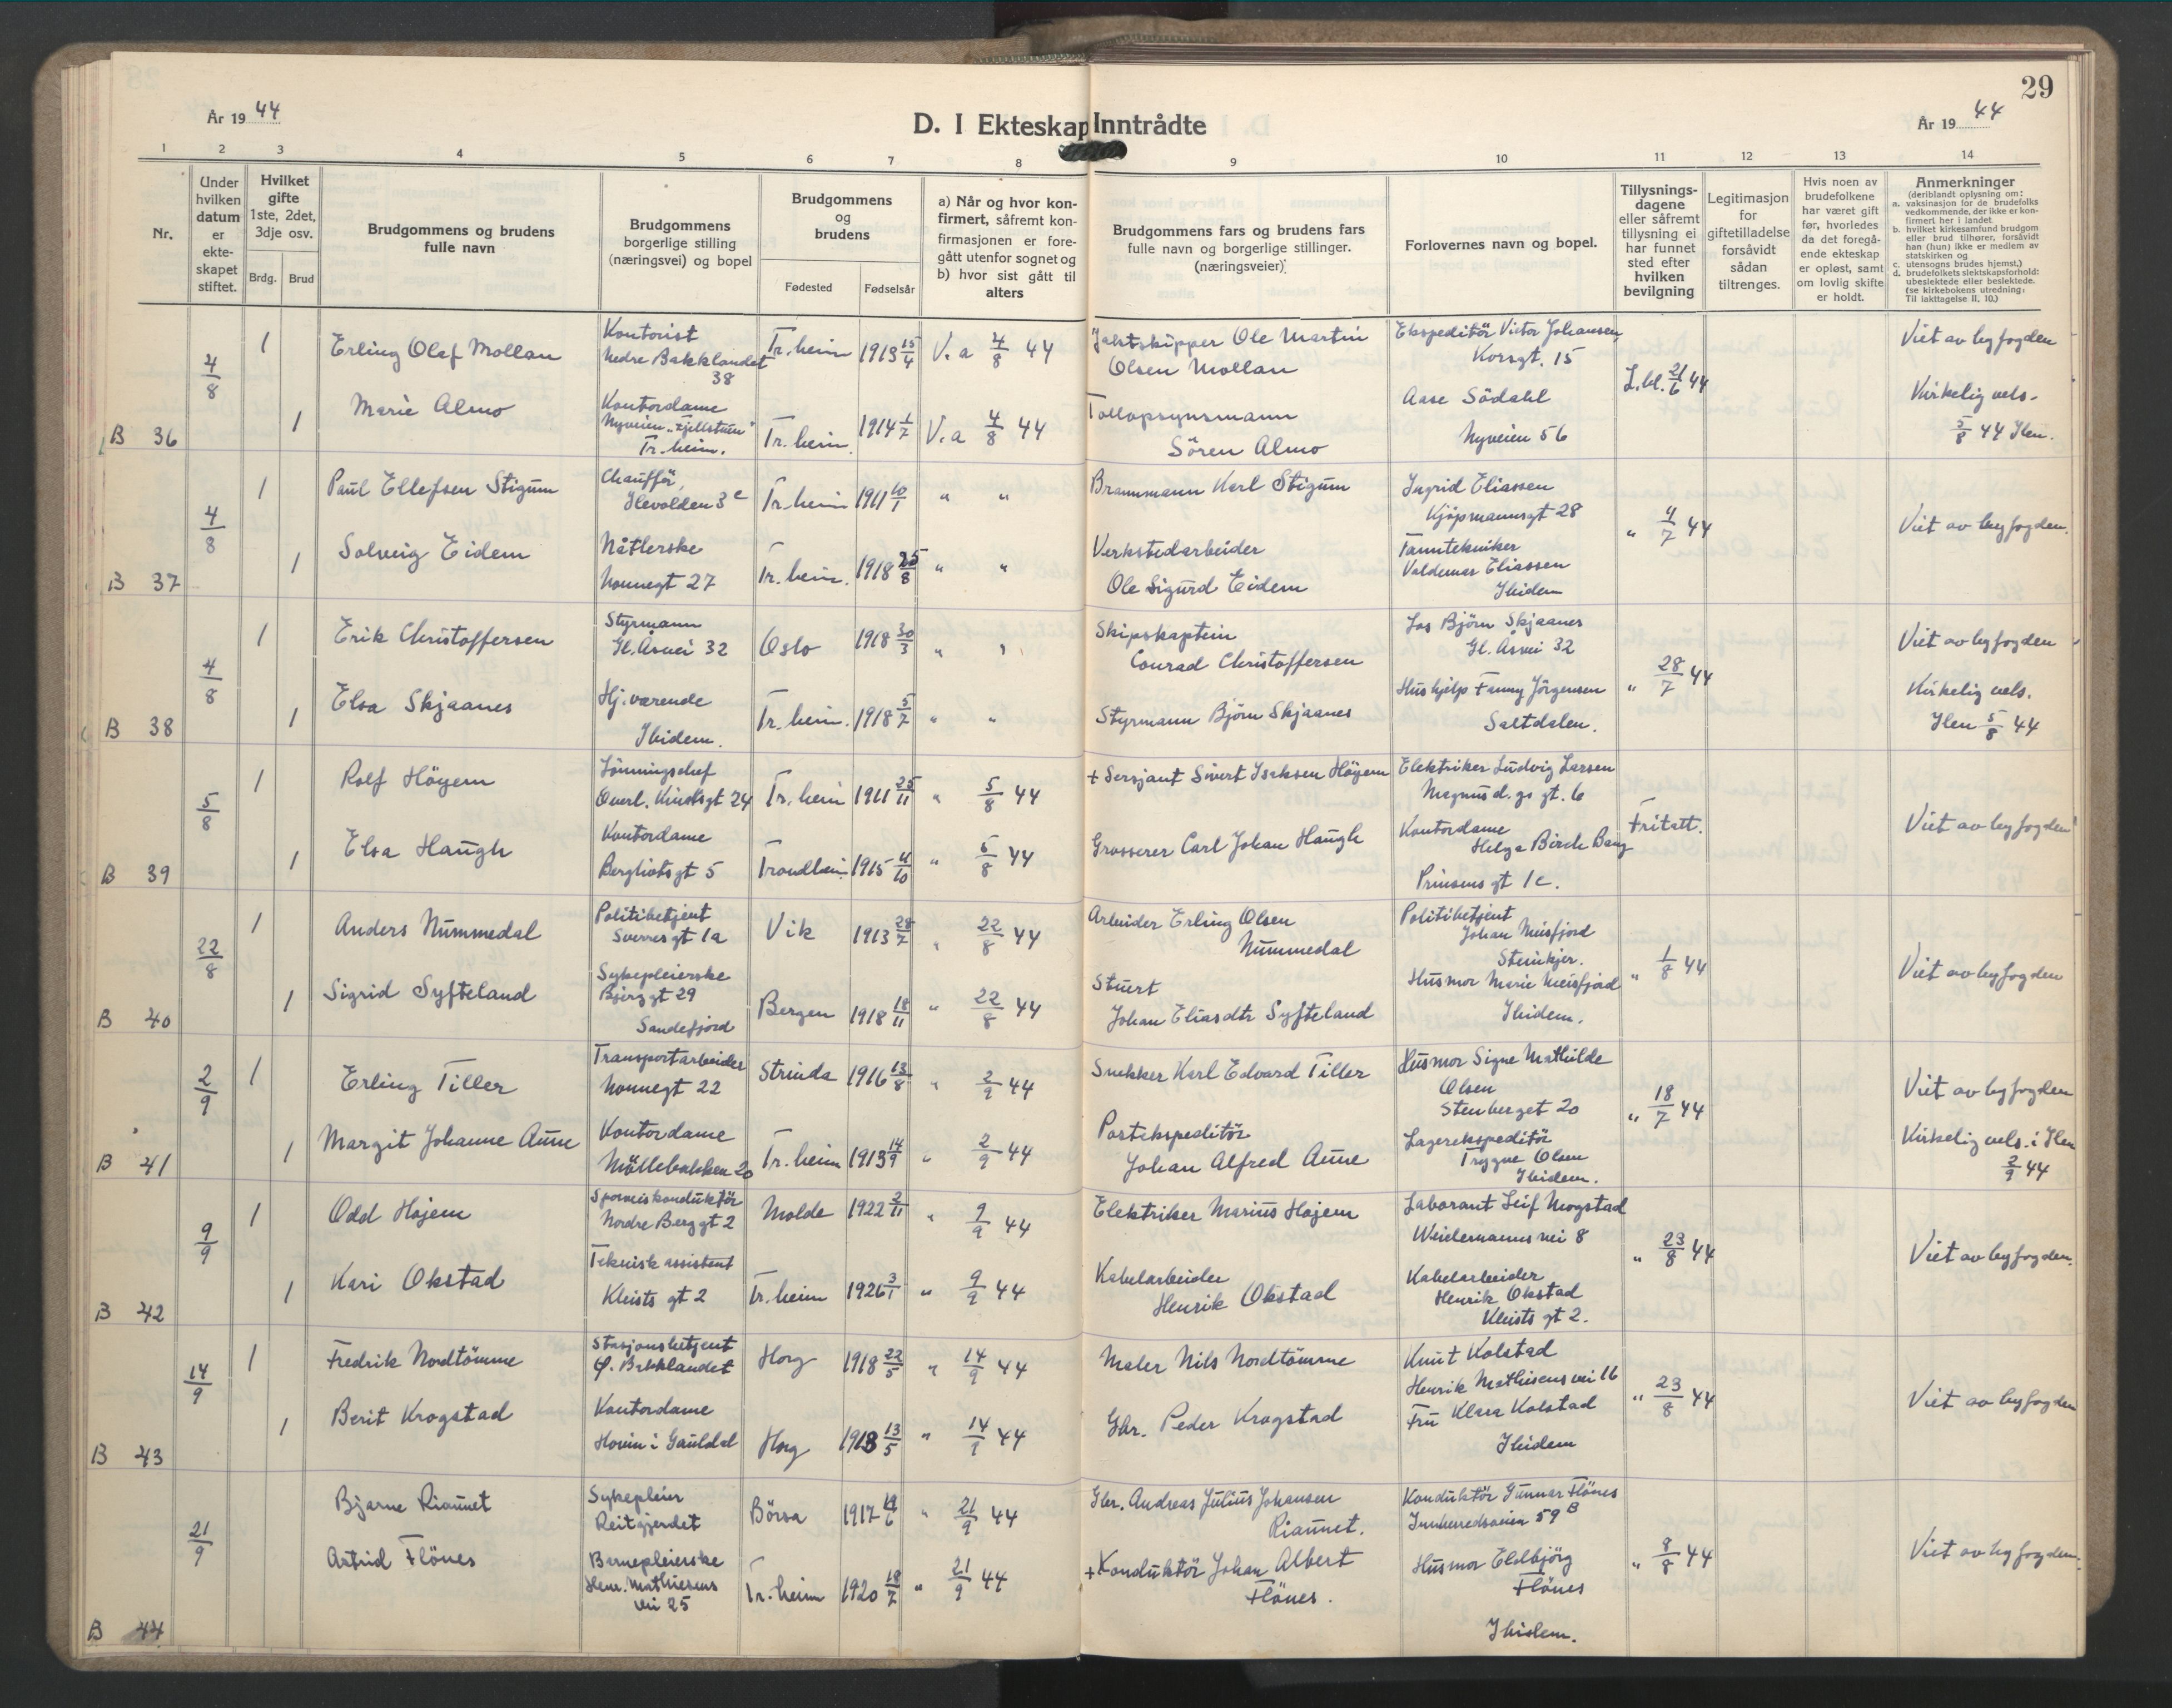 29
År 19 44
D. I Ekteskap Inntrådte
År 19 44
1 2 3 4 5 6 7 8 9 10 11 12 13 14
Nr.
Under hvilken datum er ekte-skapet stiftet.
Hvilket gifte 1ste, 2det, 3dje osv.
Brdg. Brud
Brudgommens og brudens fulle navn
Brudgommens borgerlige stilling (næringsvei) og bopel
Brudgommens og brudens
Fødested Fødselsår
a) Når og hvor kon-firmert, såfremt kon-firmasjonen er fore-gått utenfor sognet og b) hvor sist gått til alters
Brudgommens fars og brudens fars fulle navn og borgerlige stillinger. (næringsveier)
Forlovernes navn og bopel.
Tillysnings-dagene eller såfremt tillysning ei har funnet sted efter hvilken bevilgning
Legitimasjon for giftetilladelse forsåvidt sådan tiltrenges.
Hvis noen av brudefolkene har været gift før, hvorledes da det foregå-ende ekteskap er opløst, samt om lovlig skifte er holdt.
Anmerkninger
(deriblandt oplysning om:
a. vaksinasjon for de brudefolks vedkommende, der ikke er kon-firmert her i landet
b. hvilket kirkesamfund brudgom eller brud tilhører, forsåvidt han (hun) ikke er medlem av statskirken og
c. utensogns brudes hjemst.)
d. brudefolkets slektskapsforhold: ubeslektede eller beslektede.
(se kirkebokens utredning: Til iakttagelse II, 10.)
B 36
4/8
1 Erling Olaf Mollan
Kontorist
Nedre Bakklandet 38
Tr.heim 1913 15/4 V.a 4/8 44
Jaktskipper Ole Martin
Olsen Mollan
Ekspeditör Victor Johansen
Korsgt. 15
L.bl. 21/6 44
Viet av byfogden
1 Marie Almo
Kontordame
Nyveien "Fjellstuen"
Tr.heim.
Tr.heim. 1914 1/7 V.a 4/8 44
Tollopsynsmann
Sören Almo
Aase Södahl
Nyveien 56
Kirkelig vels.
5/8 44 Ilen.
B 37
4/8
1 Paul Ellefsen Stigum
Chaufför,
Ilevolden 3c
Tr.heim 1911 10/1 " "
Brannmann Karl Stigum
Ingrid Eliassen
Kjöpmannsgt 28
" 4/7 44
Viet av byfogden.
1 Solveig Eidem
Nåtlerske
Nonnegt 27
Tr.heim. 1918 25/8 " "
Verkstedarbeider
Ole Sigurd Eidem
Tanntekniker
Valdemar Eliassen
Ibidem
B 38
4/8
1 Erik Christoffersen
Styrmann
Gl. Åsvei 32
Oslo 1918 30/3 "
Skipskaptein
Conrad Christoffersen
Los Björn Skjaanes
Gl. Åsvei 32
" 28/7 44
Viet av byfogden
1 Elsa Skjaanes
Hj.værende
Ibidem.
Tr.heim. 1918 5/7 " "
Styrmann Björn Skjaanes
Hushjelp Fanny Jörgensen
Saltdalen.
Kirkelig vels.
Ilen 5/8 44
B 39
5/8
1 Rolf Höyem
Lönningschef
Överl. Kindtsgt 24
Tr.heim 1911 25/11 " 5/8 44
+ Sersjant Sivert Isaksen Höyem
Elektriker Ludvig Larsen
Magnus d. gs gt. 6
Fritatt.
Viet av byfogden
1 Elsa Haugh
Kontordame
Bergliotsgt 5
Trondheim 1915 4/10 " 5/8 44
Grosserer Carl Johan Haugh
Kontordame
Helga Birch Bang
Prinsensgt 1c.
B 40
22/8
1 Anders Nummedal
Politibetjent
Sverresgt 1a
Vik 1913 28/7 " 22/8 44
Arbeider Erling Olsen
Nummedal
Politibetjent
Johan Meisfjord
Steinkjer.
" 1/8 44
Viet av byfogden
1 Sigrid Syfteland
Sykepleierske
Bjerggt 29
Sandefjord
Bergen 1918 18/11 " 22/8 44
Stuert
Johan Eliasdtr Syfteland
Husmor Marie Meisfjord
Ibidem.
B 41
2/9
1 Erling Tiller
Transportarbeider
Nonnegt 22
Strinda 1916 13/8 " 2/9 44
Snekker Karl Edvard Tiller
Husmor Signe Mathilde
Olsen
Stenberget 20
" 18/7 44
Viet av byfogden
1 Margit Johanne Aune
Kontordame
Möllebakken 20
Tr.heim 1913 14/9 " 2/9 44
Postekspeditör
Johan Alfred Aune
Lagerekspeditör
Trygve Olsen
Ibidem.
Kirkelig vels. i Ilen
2/9 44
B 42
9/9
1 Odd Hojem
Sporveiskonduktör
Nordre Berggt 2
Molde 1922 2/11 " 9/9 44
Elektriker Marius Hojem
Laborant Leif Mogstad
Weidemanns vei 8
" 23/8 44
Viet av byfogden.
1 Kari Okstad
Teknisk assistent
Kleists gt 2
Tr.heim 1926 3/1 " 9/9 44
Kabelarbeider
Henrik Okstad
Kabelarbeider
Henrik Okstad
Kleists gt 2.
B 43
14/9
1 Fredrik Nordtömme
Stasjonsbetjent
Ø. Bakklandet
Horg 1918 22/5 " 14/9 44
Maler Nils Nordtömme
Knut Kolstad
Henrik Mathisens vei 16
" 23/8 44
Viet av byfogden
1 Berit Krogstad
Kontordame
Hovin i Gauldal
Horg 1918 13/5 " 14/9 44
Gbr. Peder Krogstad
Fru Klara Kolstad
Ibidem
B 44
21/9
Bjarne Riaunet
Sykepleier
Reitgjerdet
Börsa 1917 " 21/9 44
Gbr. Andreas Julius Johansen
Riaunet.
Konduktör Gunnar Flönes
Innherredsveien 59 B
" 8/8 44
Viet av byfogden.
Astrid Flönes
Barnepleierske
Henr. Mathiesens
vei 25
Tr.heim 1920 18/7 " 21/9 44
+ Konduktör Johan Albert
Flönes.
Husmor Eldbjörg
Flönes
Ibidem.